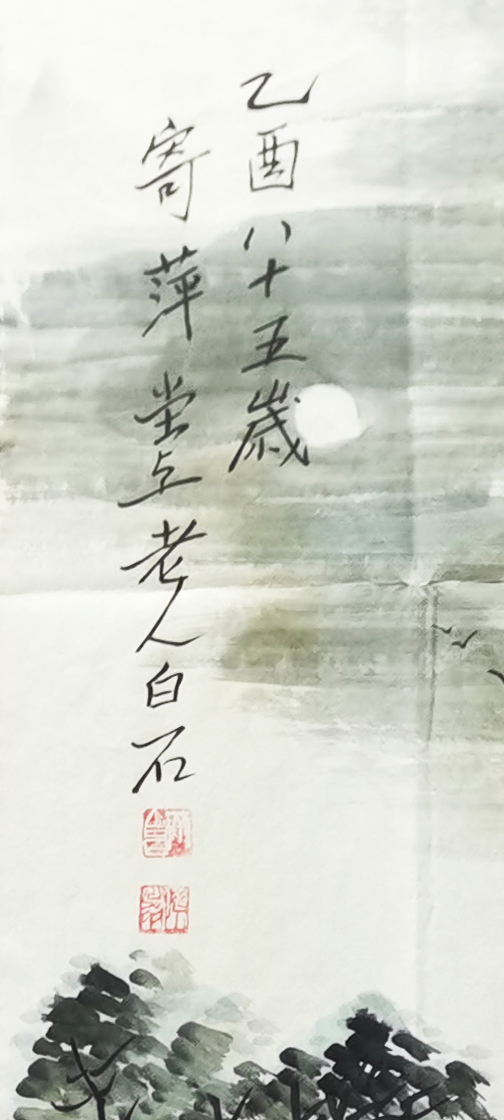 乙酉八十五歲
寄萍堂上老人白石